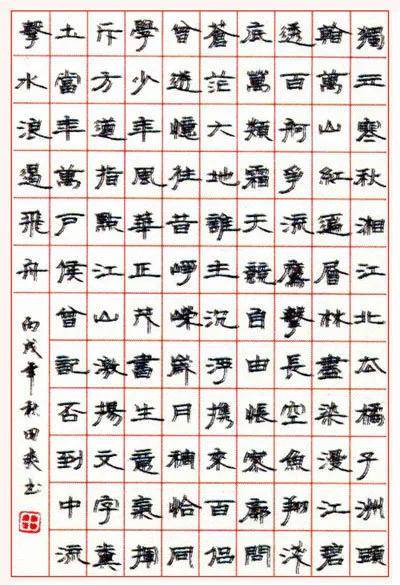 獨立寒秋湘江北去橘子洲頭
看萬山紅遍層林盡染漫江碧
透百舸爭流鷹擊長空魚翔淺
底萬類霜天競自由悵寥廓問
蒼茫大地誰主沉浮携來百侶
曾遊憶往昔崢嶸歲月稠恰同
學少年風華正茂書生意氣揮
斥方遒指點江山激揚文字糞
土當年萬戶侯曾記否到中流
擊水浪遏飛舟
丙戌年秋田书